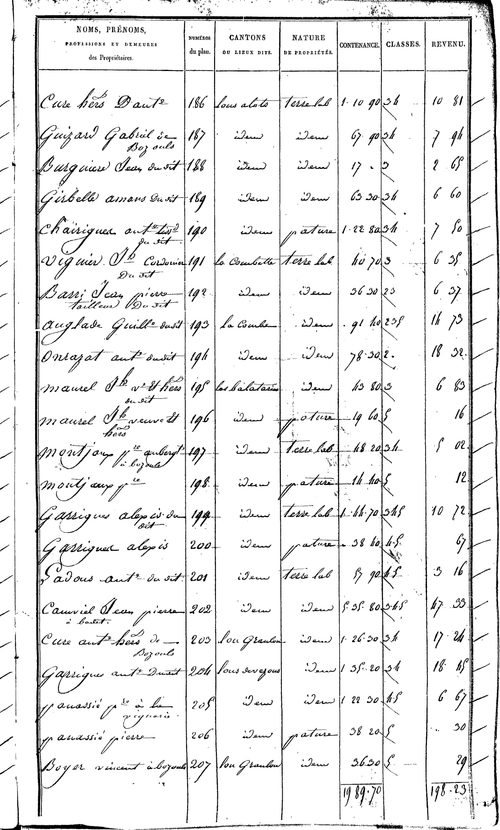 NOMS, PRÉNOMS, PROFESSIONS ET DEMEURES des Propriétaires. NUMÉROS du plan. CANTONS OU LIEUX DITS. NATURE DE PROPRIÉTÉS. CONTENANCE. CLASSES. REVENU.
Cure hérs D ant.e 186 terre lab 1.10 90 34 10 81
Guizard Gabriel de Bozouls 187 idem idem 67 90 34 7 94
Burguiere Jean du dit 188 idem idem 17 . 3 2 65
Girbelle amans du dit 189 idem idem 63 30 34 6 60
190 idem pature 1.22 80 34 7 50
Viguier Jh Cordonnier du dit 191 la Combette terre lab 40 70 3 6 35
Barri Jean pierre tailleur du dit 192 idem idem 36 30 23 6 37
anglade Guill.e du dit 193 la Combe idem . 91 40 235 14 73
ant. du dit 194 idem idem 78.30 2. 18 32.
maurel Jh v.e et hérs du dit 195 idem 43 80 3 6 83
maurel Jh veuve et hérs 196 idem pature 19 60 5 16
montjaux p.re auberg.te à bozouls 197 idem terre lab 48 20 34 5 02
montjaux p.re 198 idem pature 14 40 5 12
Garrigues alexis du dit 199 idem terre lab 1.44.70 345 10 72
Garrigues alexis 200 idem pature 38 40 45 67
ant.e du dit 201 idem terre lab 57 90 45 3 16
Jean pierre 202 idem idem 5 35 80 345 47 33
Cure ant.e hérs de Bozouls 203 lou Graulou idem 1.26 30 34 17.24
Garrigues ant.e du dit 204 idem 1 35.20 34 18 45
panassié p.re à la viguerie 205 idem idem 1 22 30 45 6 67
panassié pierre 206 idem pature 38 20 5 . 30
Boyer vincent à bozouls 207 lou Graulou idem 36 30 5 29
1989.70 198.23